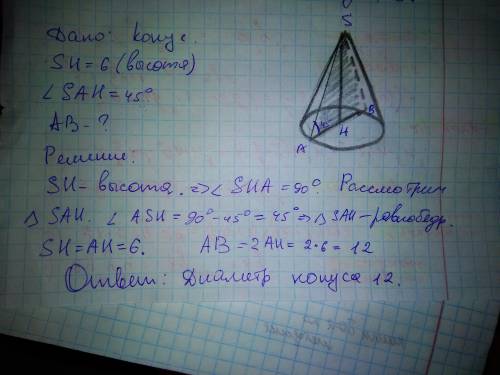 Дано: конус.
SH=6 (высота)
∠SAH=45°
AB-?
Решение.
SH- высота. => ∠SHA=90°. Рассмотрим
△ SAH. ∠ ASH=90°-45°=45° => △ SAH-равнобедр.
SH=AH=6. AB=2AH=2·6=12
Ответ: Диаметр конуса 12.
S
B
H
A